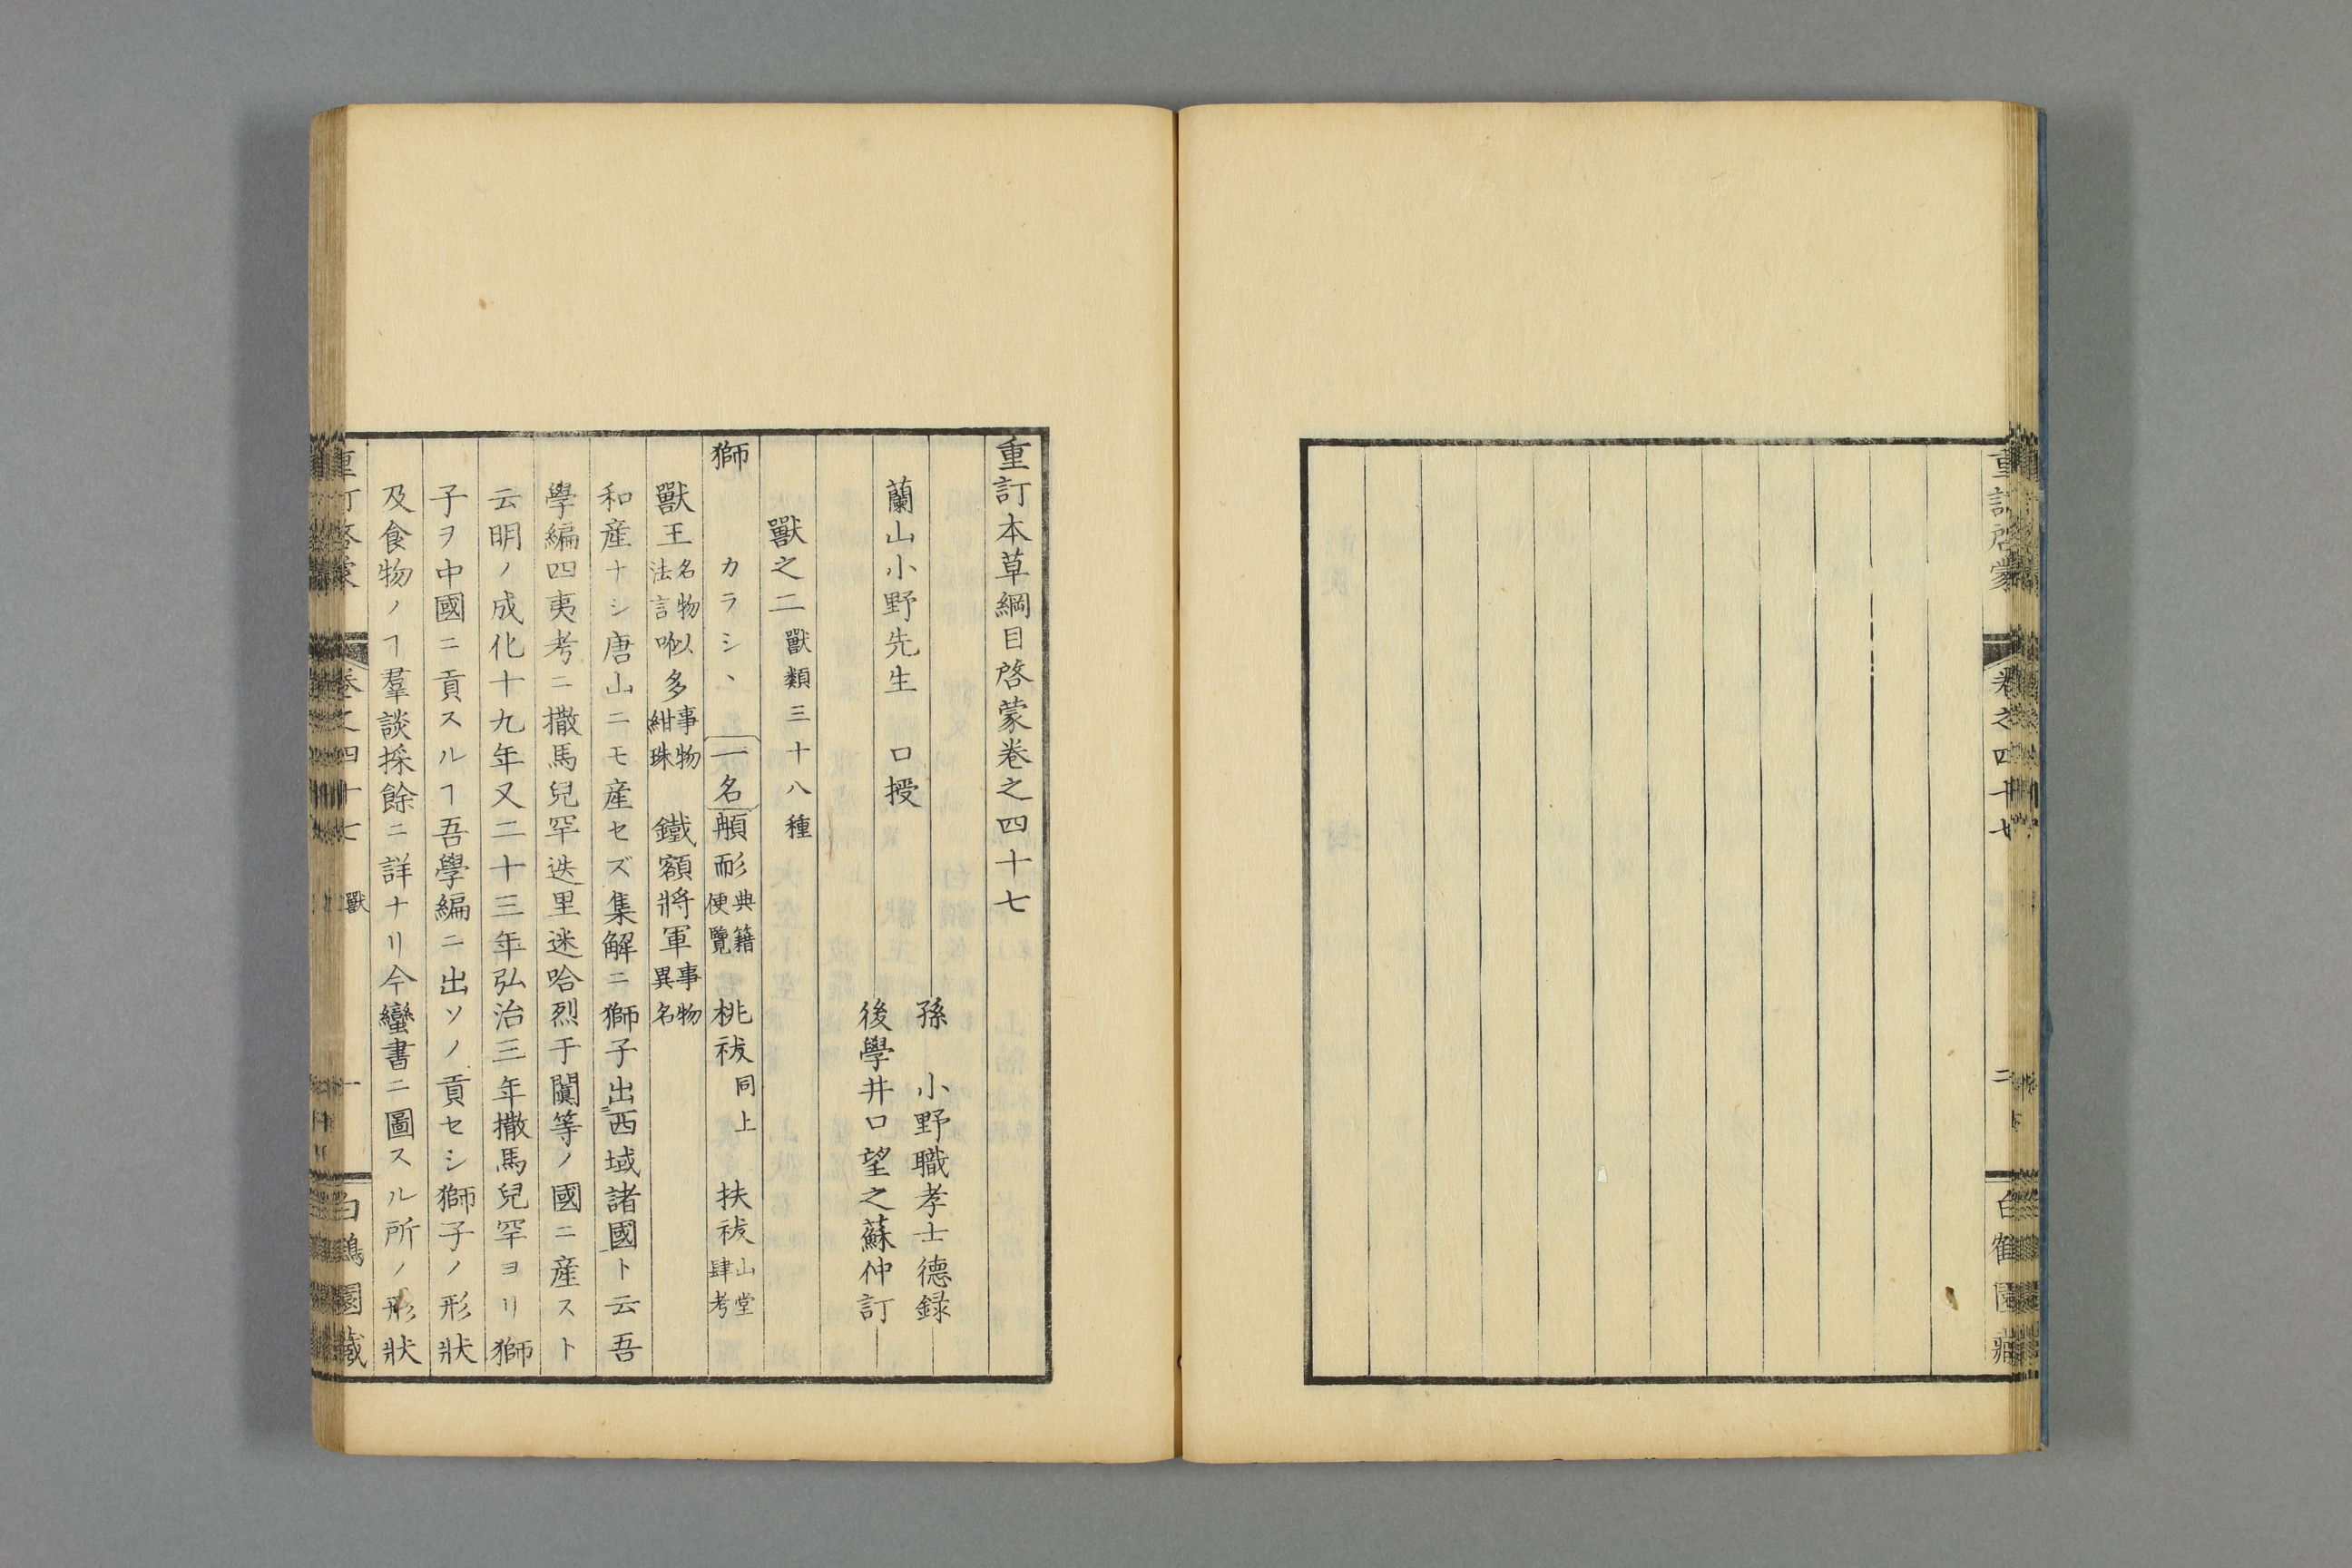 重訂啓蒙　卷之四十七　二　白鶴園藏
重訂本草綱目啓蒙卷之四十七
孫　小野職孝士德録
蘭山小野先生　口授
後學井口望之蘇仲訂
獸之二　獸類三十八種
獅　カラシヽ　一名　䫇耏　典籍便覽　桃祓　同上　扶祓　山堂肆考
獸王　名物法言　㖠以多　事物紺珠　鐵額將軍　事物異名
和産ナシ唐山ニモ産セズ集解ニ獅子出西域諸國ト云吾
學編四夷考ニ撒馬兒罕迭里迷哈烈于闐等ノ國ニ産スト
云明ノ成化十九年又二十三年弘治三年撒馬兒罕ヨリ獅
子ヲ中國ニ貢スルヿ吾學編ニ出ソノ貢セシ獅子ノ形狀
及食物ノヿ羣談採餘ニ詳ナリ今蠻書ニ圖スル所ノ形狀
重訂啓蒙　卷之四十七　獸　一　白鶴園藏